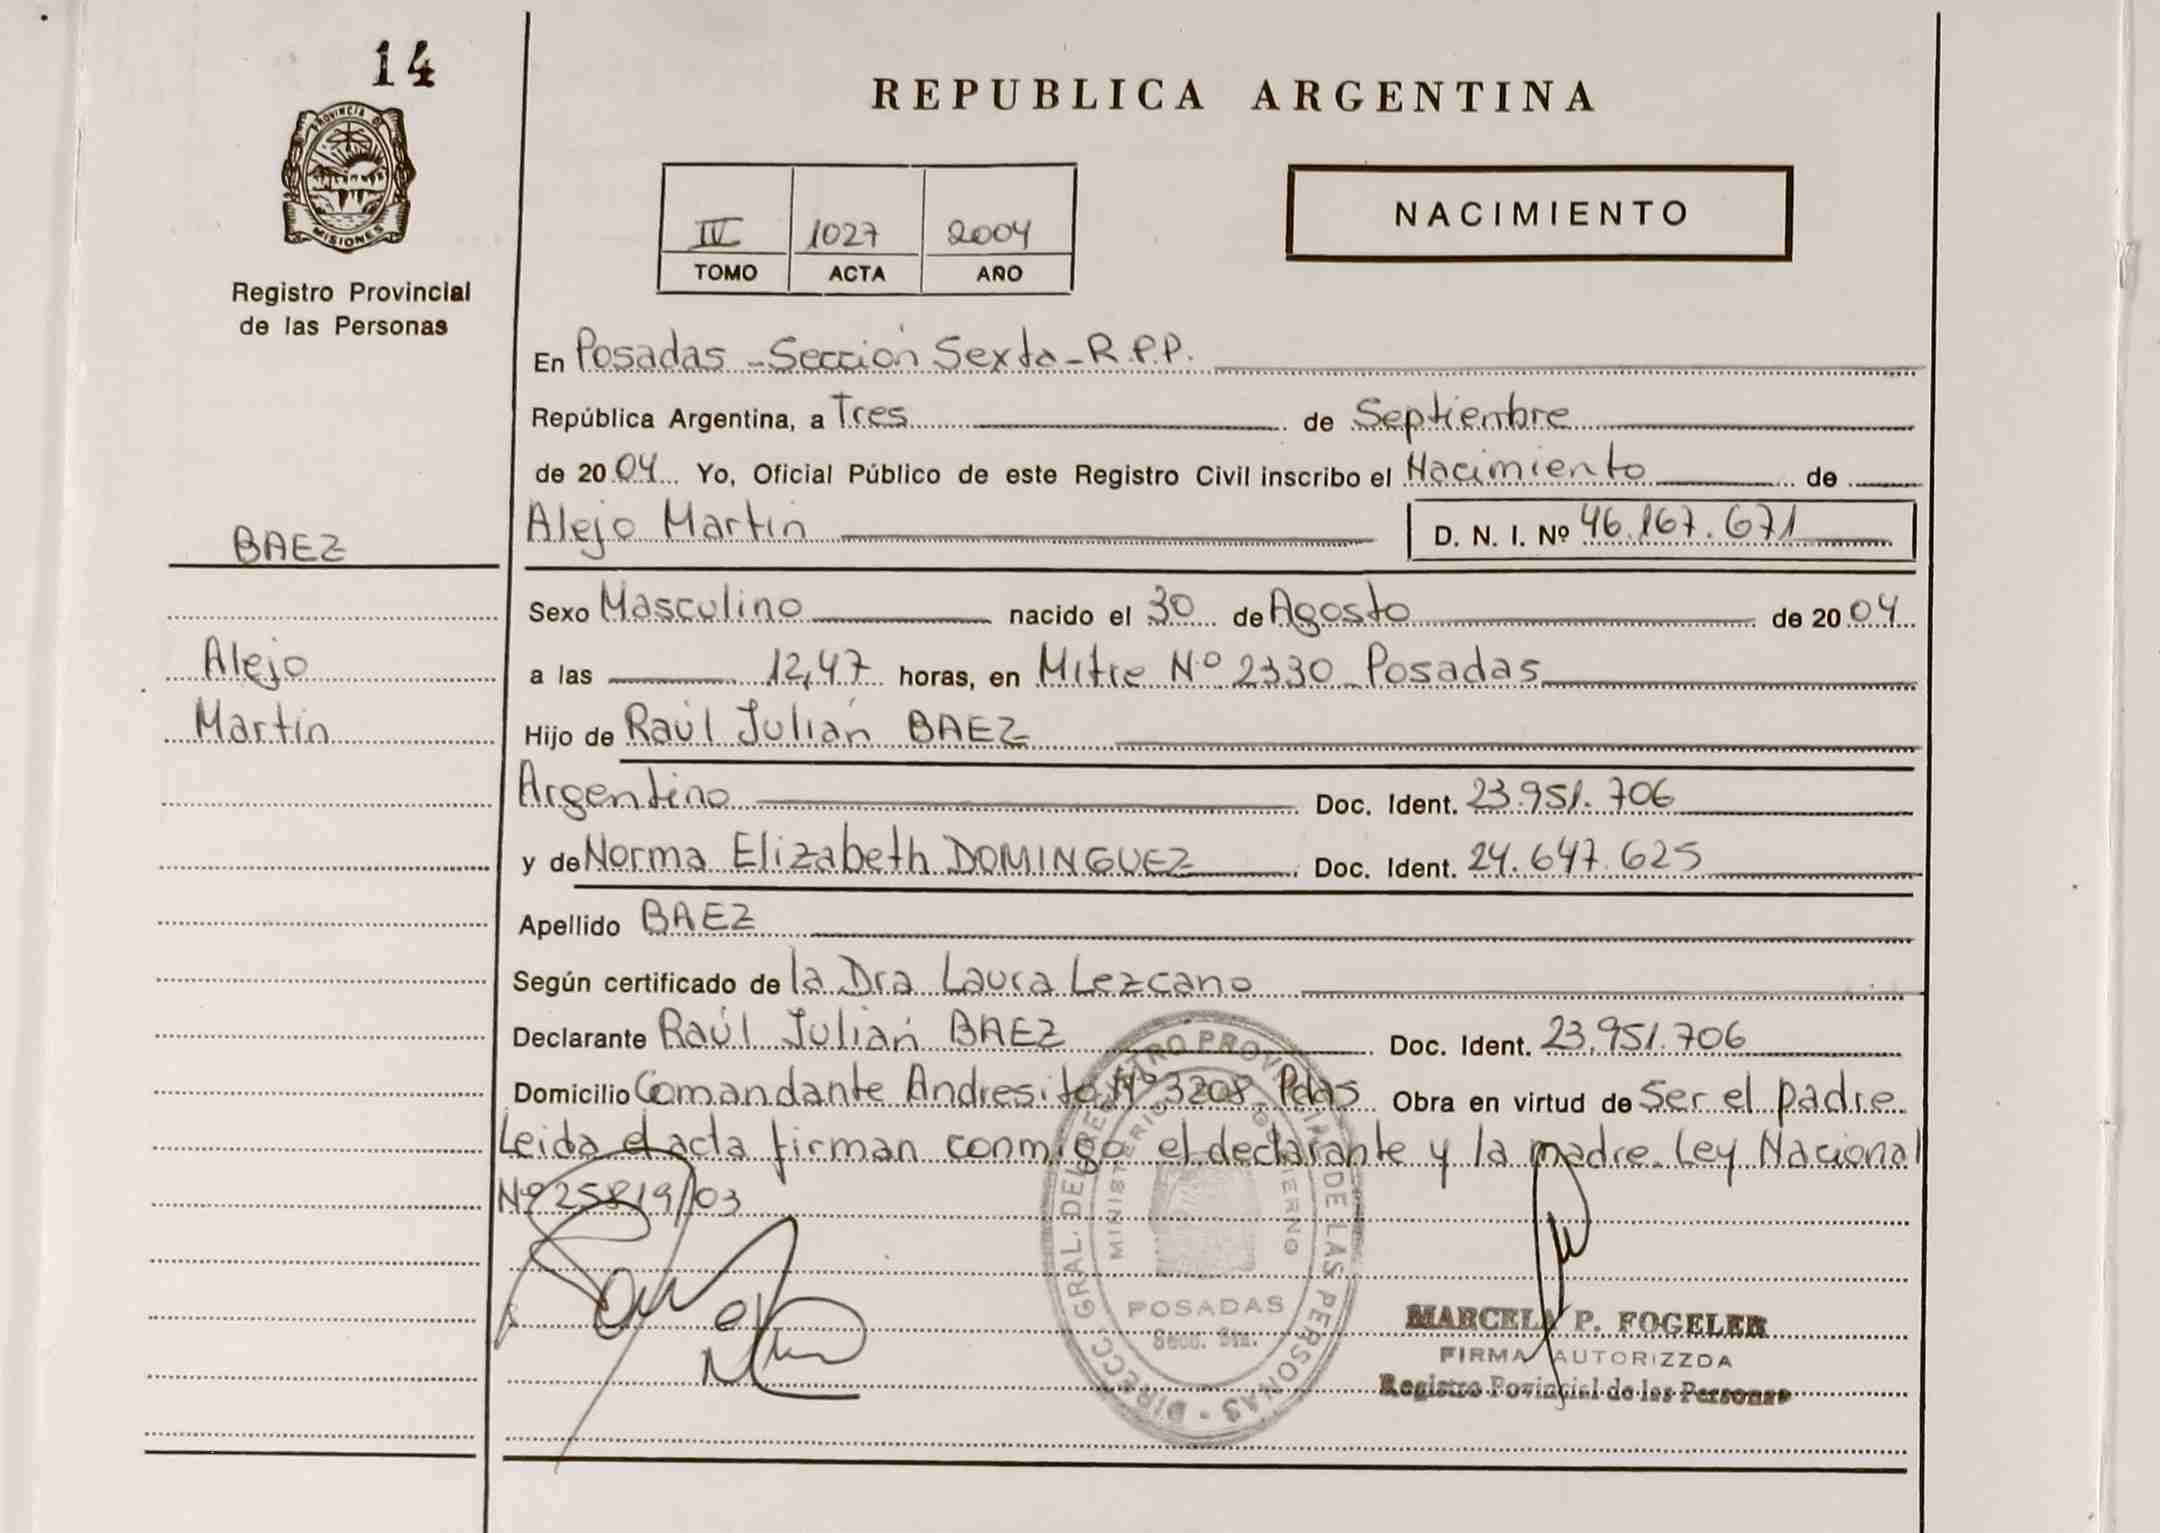 14
PROVINCIA DE
MISIONES
Registro Provincial
de las Personas
REPUBLICA ARGENTINA
IV 1027 2004
TOMO ACTA AÑO
NACIMIENTO
En Posadas - Sección Sexta - R.P.P.
República Argentina, a Tres de Septiembre
de 2004 Yo, Oficial Público de este Registro Civil inscribo el Nacimiento de
BAEZ
Alejo Martín D. N. I. Nº 46.167.671
Sexo Masculino nacido el 30 de Agosto de 2004
Alejo
a las 12,47 horas, en Mitre Nº 2330 Posadas
Martín
Hijo de Raúl Julián BAEZ
Argentino Doc. Ident. 23.951.706
y de Norma Elizabeth DOMINGUEZ Doc. Ident. 24.647.625
Apellido BAEZ
Según certificado de la Dra Laura Lezcano
Declarante Raúl Julián BAEZ Doc. Ident. 23.951.706
Domicilio Comandante Andresito Nº 3208 Pdas Obra en virtud de Ser el padre
Leida el acta firman conmigo el declarante y la madre. Ley Nacional
Nº 25819/03
DIRECC GRAL. DEL REGISTRO PROVINCIAL DE LAS PERSONAS
MINISTERIO DE GOBIERNO
POSADAS
Secc.
MARCELA P. FOGELER
FIRMA AUTORIZZDA
Registro Povincial de las Personas